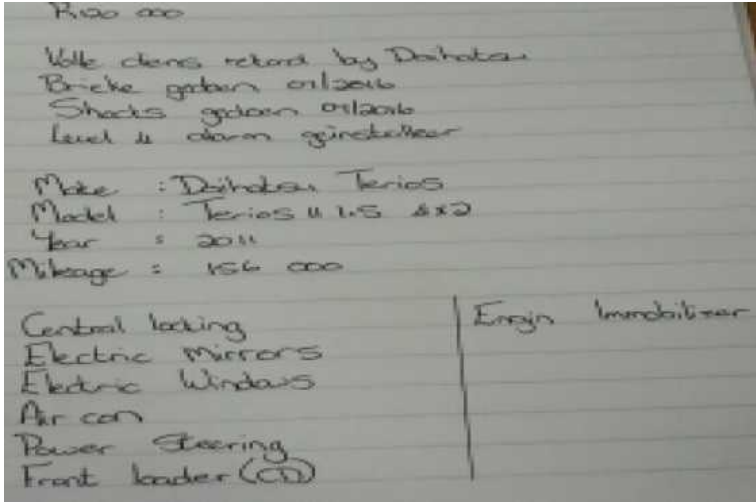 R120 000
Volle diens rekord by Daihatsu
Bricke gedoen 01/2016
Shocks gedoen 01/2016
Level 4 alarm geinstalleer
Make : Daihatsu Terios
Model : Terios II 1.5 4x2
Year : 2011
Mileage : 156 000
Central locking
Electric Mirrors
Electric Windows
Air con
Power Steering
Front loader (CD)
Engin Immobilizer